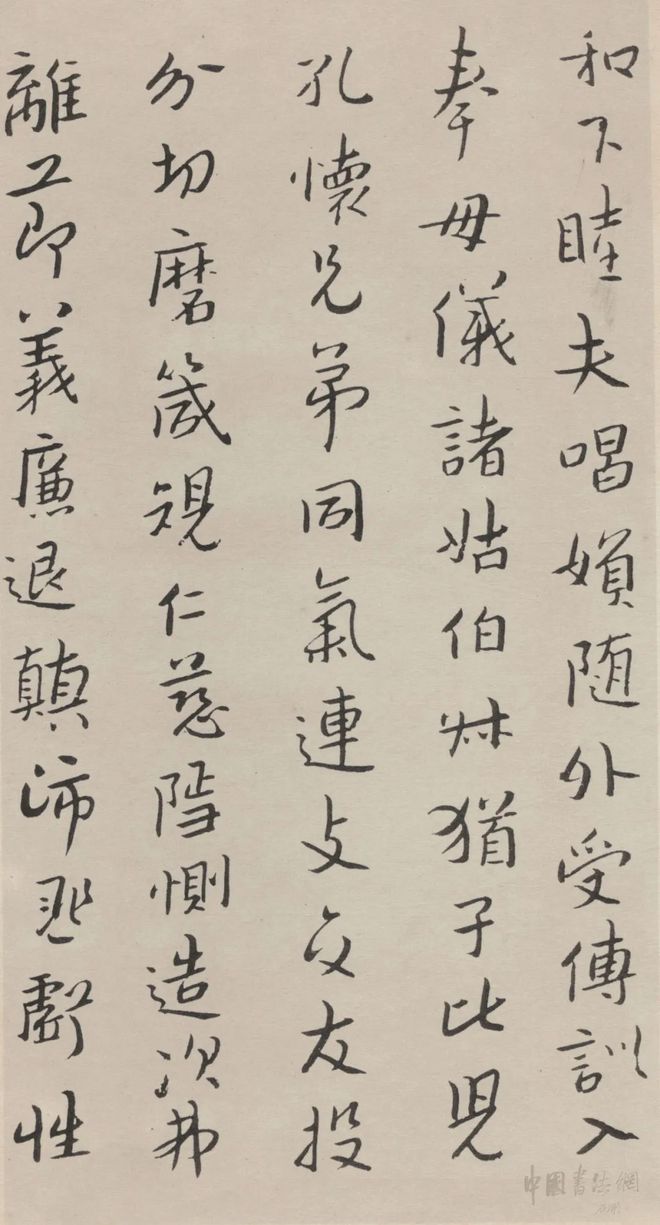 和下睦夫唱婦随外受傅訓入
奉母儀諸姑伯叔猶子比兒
孔懷兄弟同氣連支交友投
分切磨箴規仁慈隱惻造次弗
離節義廉退顛沛匪虧性
中國書法網